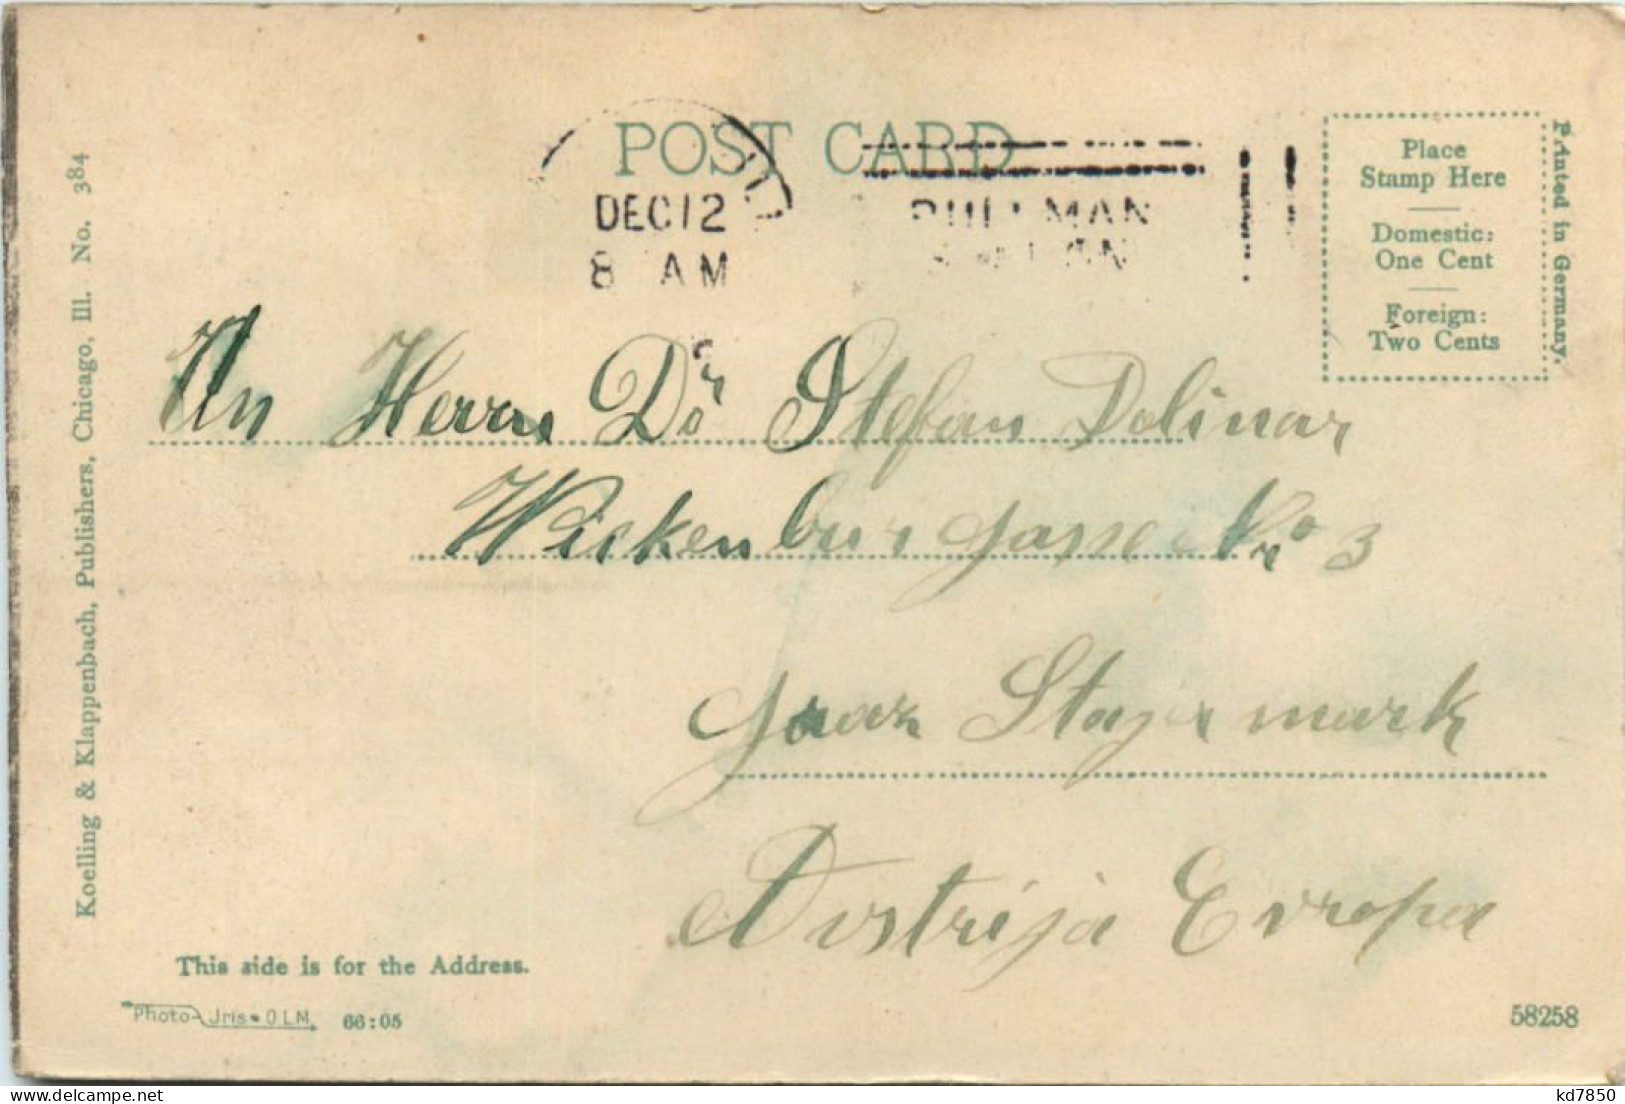 POST CARD
DEC 12
8 AM
PULLMAN
STATION
Place
Stamp Here
Domestic:
One Cent
Foreign:
Two Cents
Printed in Germany.
Koelling & Klappenbach, Publishers, Chicago, Ill. No. 384
An Herrn Dr Stefan Dolinar
Wickenburgasse No 3
Graz Stajermark
Avstrija Evropa
This side is for the Address.
Photo-Jris•OLM. 66:05
58258
kd7850